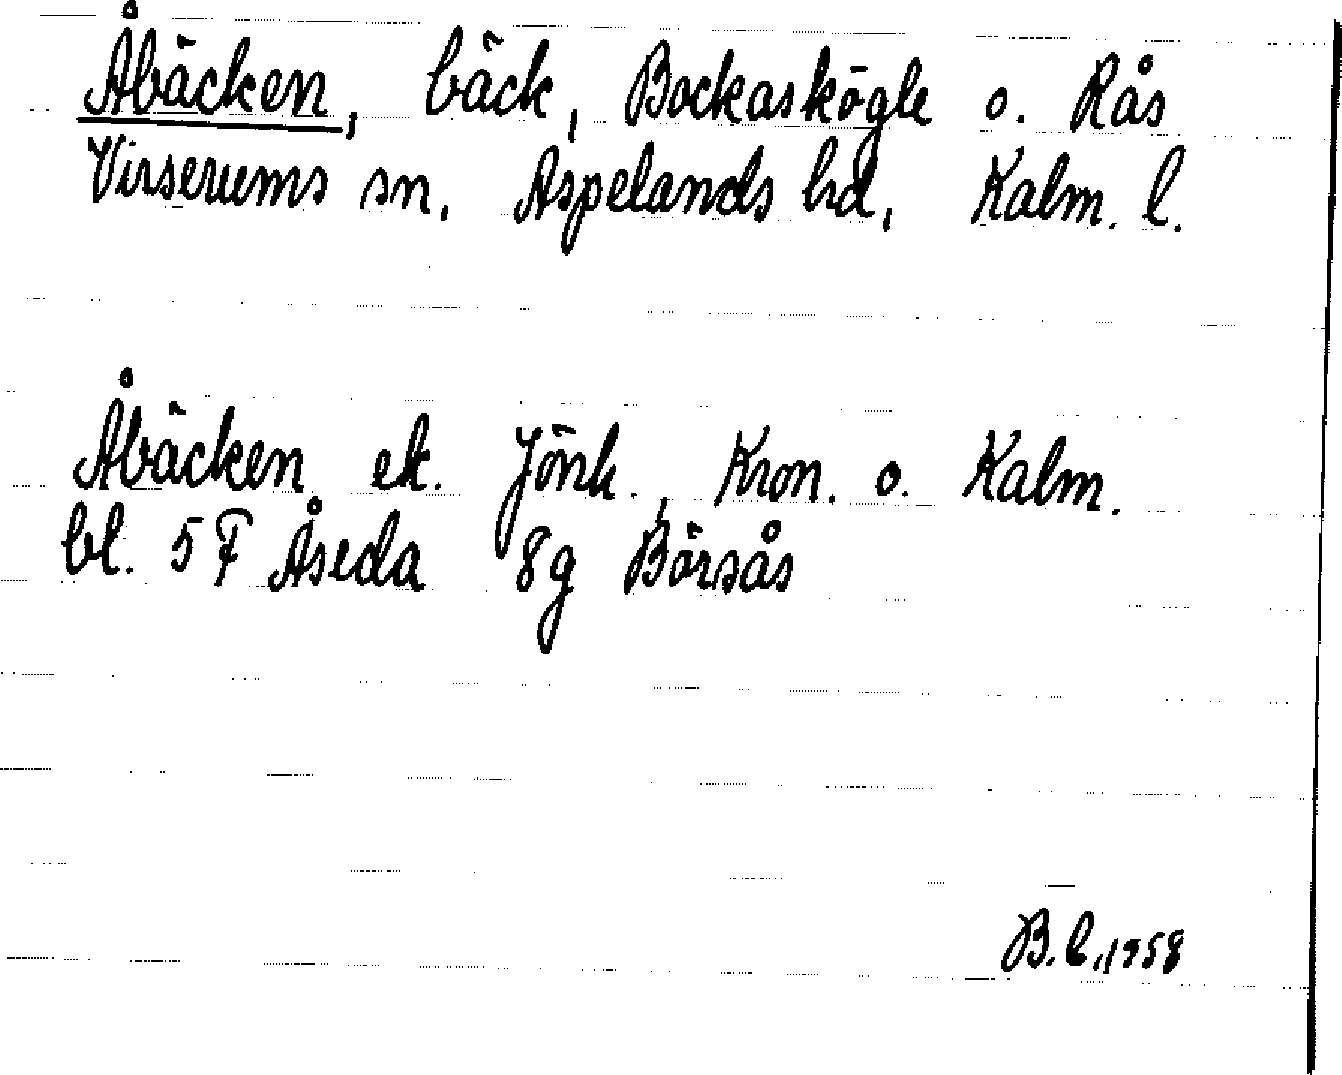 Åbäcken, bäck, Bockaskögle o. Rås
Virserums sn, Aspelands hd, Kalm. l.
Åbäcken ek. Jönk., Kron. o. Kalm.
bl. 5 F Åseda 8g Börsås
B. C. 1958